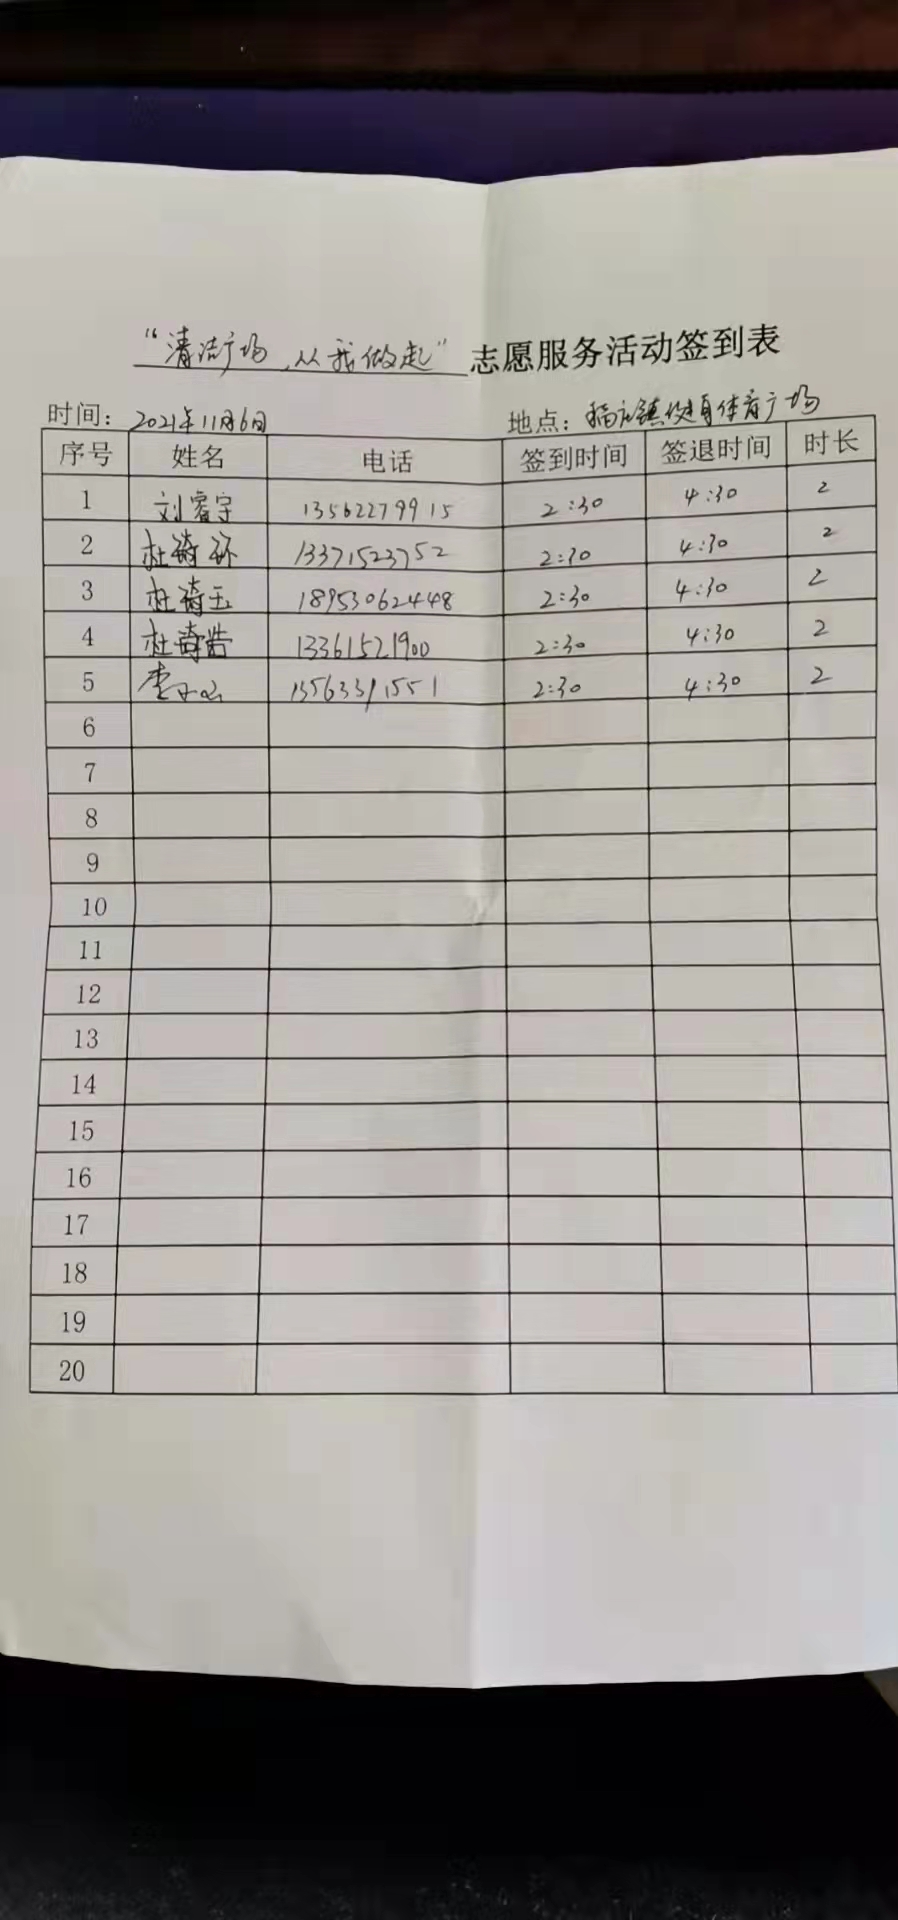 “清洁广场,从我做起”志愿服务活动签到表
时间:2021年11月6日 地点:镇健身体育广场
序号 姓名 电话 签到时间 签退时间 时长
1 刘睿宇 13562279915 2:30 4:30 2
2 杜琦 13371523752 2:30 4:30 2
3 杜琦玉 18953062448 2:30 4:30 2
4 杜琦浩 13361521900 2:30 4:30 2
5 李子 13563391551 2:30 4:30 2
6
7
8
9
10
11
12
13
14
15
16
17
18
19
20